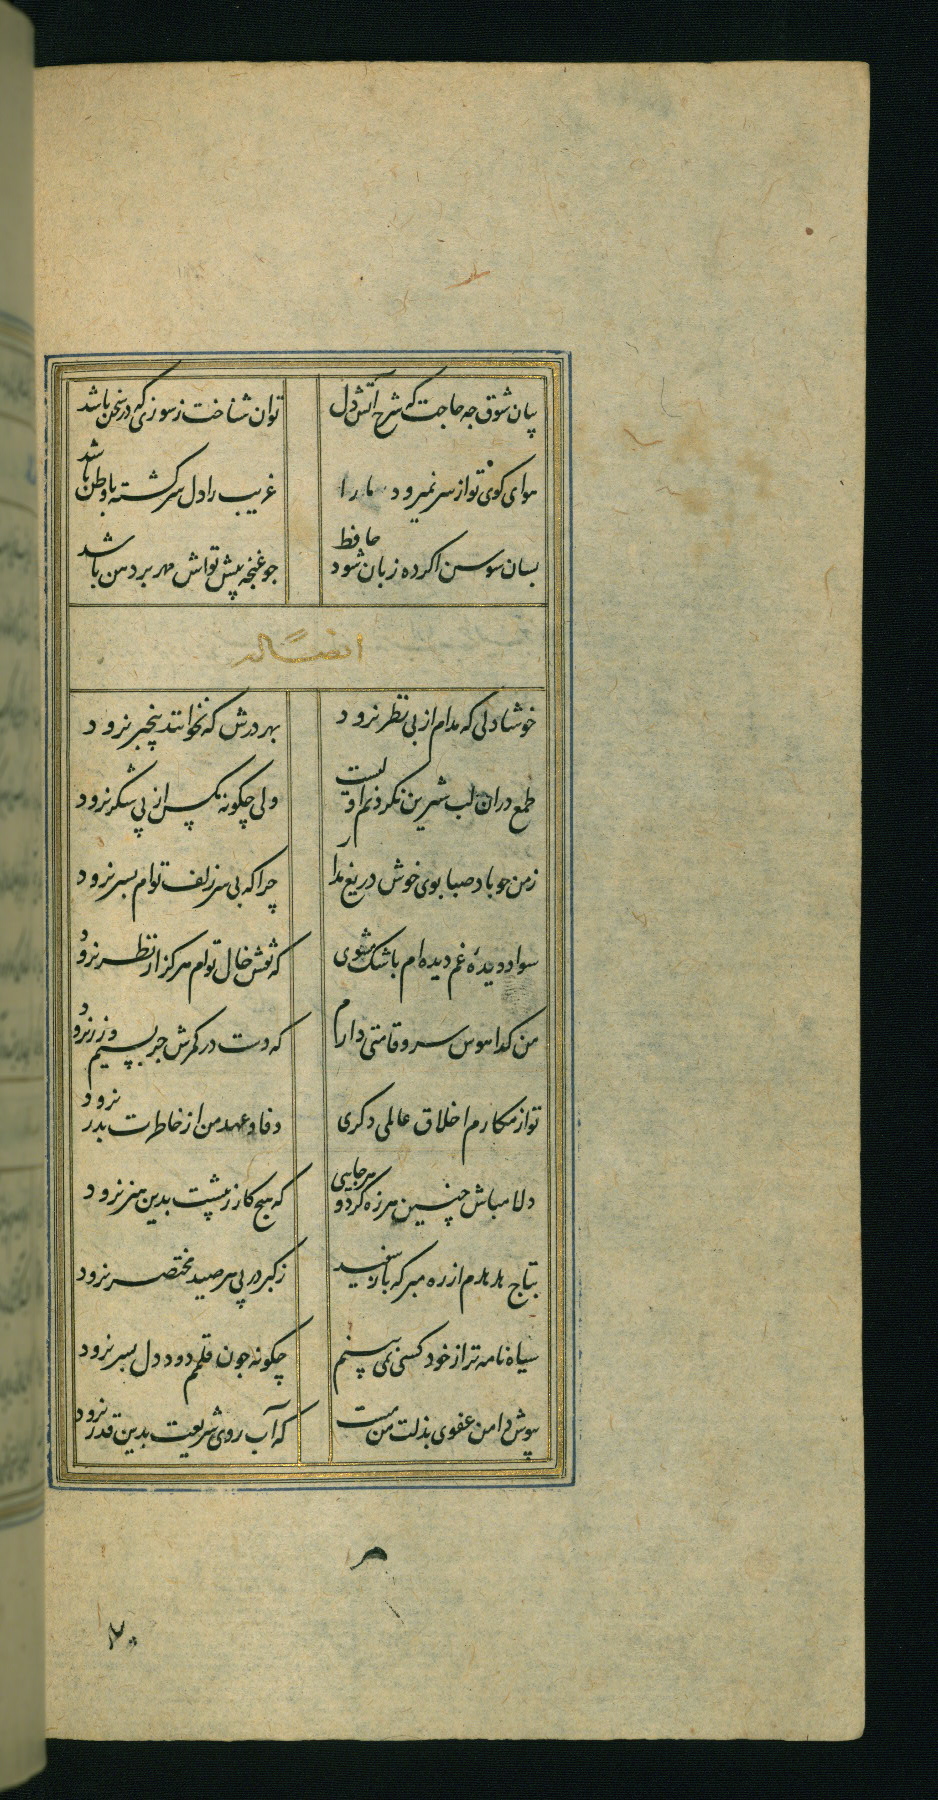 بیان شوق جه حاجت که شرح آتش دل
توان شناخت ز سوزی که در سخن باشد
هوای کوی تو از سر نمیرود ما را
غریب را دل سرکشته با وطن باشد
بسان سوسن اکر ده زبان شود حافظ
جو غنجه پیش تواش مهر بر دهن باشد
ایضاً له
خوشا دلی که مدام از پی نظر نرود
بهر درش که نخوانند بیخبر نرود
طمع دران لب شیرین نکردنم اولیست
ولی چکونه مکس از پی شکر نرود
ز من جو باد صبا بوی خوش دریغ مدار
چرا که بی سر زلف توام بسر نرود
سواد دیدهٔ غم دیده ام باشک مشوی
که نقش خال توام هرکز از نظر نرود
من کدا هوس سرو قامتی دارم
که دست در کمرش جز بسیم و زر نرود
تو از مکارم اخلاق عالمی دکری
وفا و عهد من از خاطرت بدر نرود
دلا مباش چنین هرزه کرد و هرجایی
که هیج کار ز پیشت بدین هنر نرود
بتاج هدهدم از ره مبر که باز سفید
ز کبر در پی هر صید مختصر نرود
سیاه نامه تر از خود کسی نمی بینم
چکونه جون قلمم دود دل بسر نرود
بپوش دامن عفوی بذلت من مست
که آب روی شریعت بدین قدر نرود